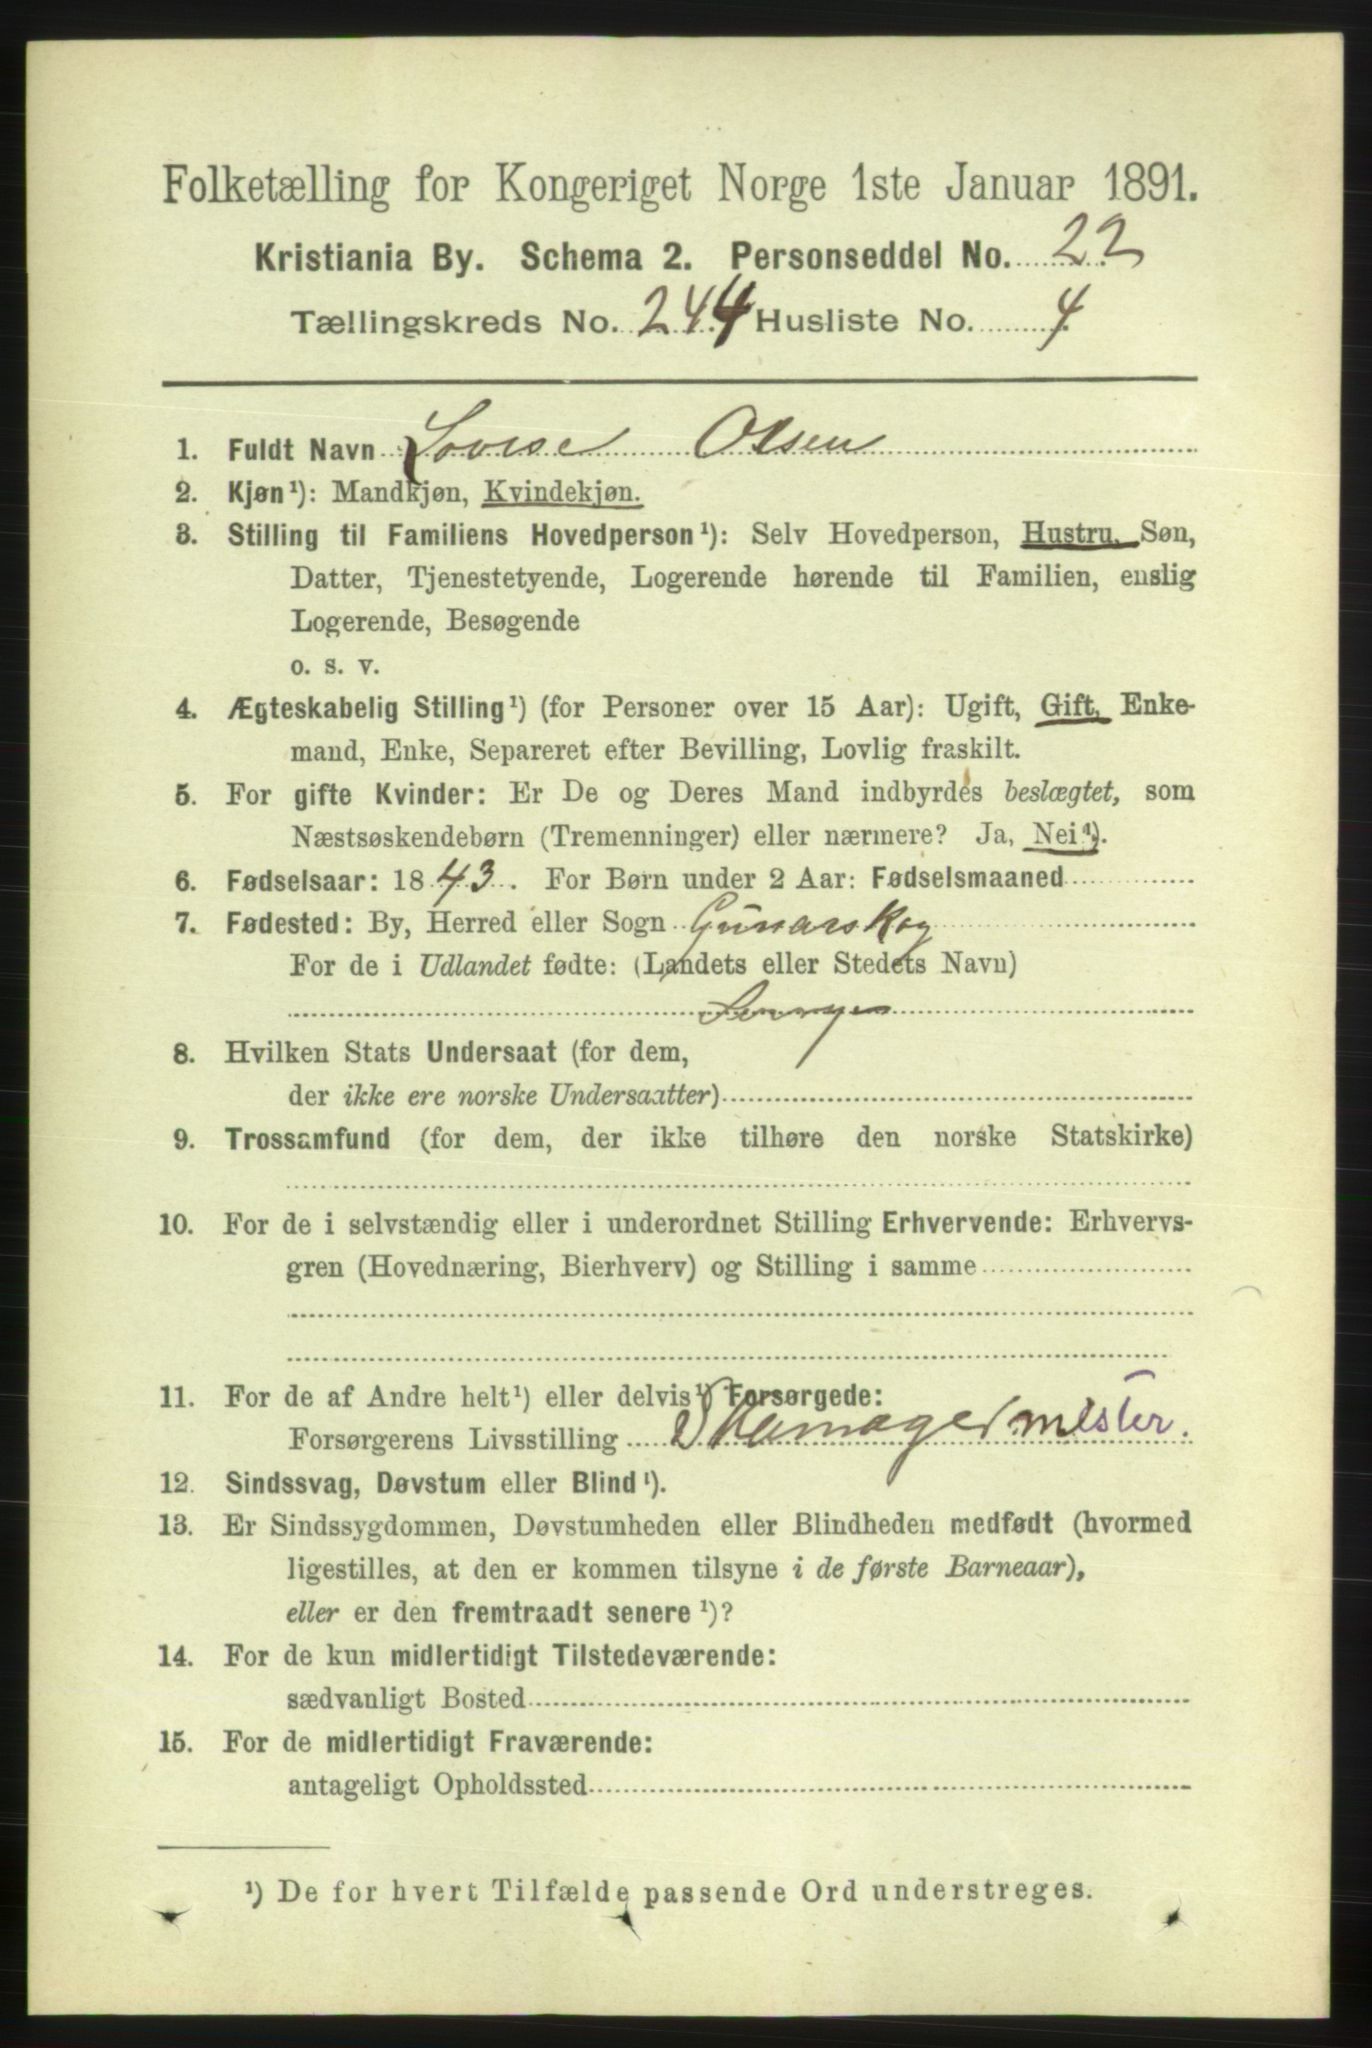 Folketælling for Kongeriget Norge 1ste Januar 1891.
Kristiania By. Schema 2. Personseddel No. 22
Tællingskreds No. 244 Husliste No. 4
1. Fuldt Navn Lovise Olsen
2. Kjøn¹): Mandkjøn, Kvindekjøn.
3. Stilling til Familiens Hovedperson¹): Selv Hovedperson, Hustru, Søn,
Datter, Tjenestetyende, Logerende hørende til Familien, enslig
Logerende, Besøgende
o. s. v.
4. Ægteskabelig Stilling¹) (for Personer over 15 Aar): Ugift, Gift, Enke-
mand, Enke, Separeret efter Bevilling, Lovlig fraskilt.
5. For gifte Kvinder: Er De og Deres Mand indbyrdes beslægtet, som
Næstsøskendebørn (Tremenninger) eller nærmere? Ja, Nei¹).
6. Fødselsaar: 1843. For Børn under 2 Aar: Fødselsmaaned
7. Fødested: By, Herred eller Sogn Gunarskog
For de i Udlandet fødte: (Landets eller Stedets Navn)
8. Hvilken Stats Undersaat (for dem,
der ikke ere norske Undersaatter)
9. Trossamfund (for dem, der ikke tilhøre den norske Statskirke)
10. For de i selvstændig eller i underordnet Stilling Erhvervende: Erhvervs-
gren (Hovednæring, Bierhverv) og Stilling i samme
11. For de af Andre helt¹) eller delvis¹) Forsørgede:
Forsørgerens Livsstilling Skomagermester.
12. Sindssvag, Døvstum eller Blind¹).
13. Er Sindssygdommen, Døvstumheden eller Blindheden medfødt (hvormed
ligestilles, at den er kommen tilsyne i de første Barneaar),
eller er den fremtraadt senere¹)?
14. For de kun midlertidigt Tilstedeværende:
sædvanligt Bosted
15. For de midlertidigt Fraværende:
antageligt Opholdssted
¹) De for hvert Tilfælde passende Ord understreges.